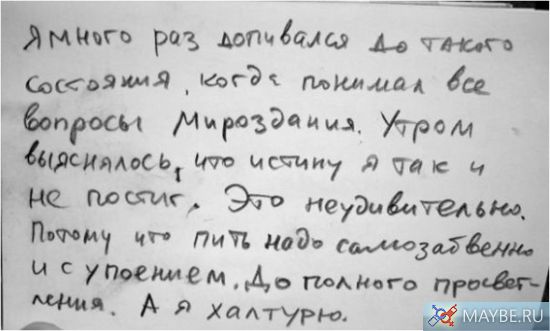 Я много раз допивался до такого
состояния, когда понимал все
вопросы Мироздания. Утром
выяснялось, что истину я так и
не постиг. Это неудивительно.
Потому что пить надо самозабвенно
и с упоением. До полного просвет-
ления. А я халтурю.
MAYBE.RU